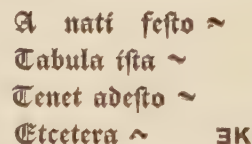 A nati feſto ~
Tabula iſta ~
Tenet adeſto ~
Etcetera ~ ƎK